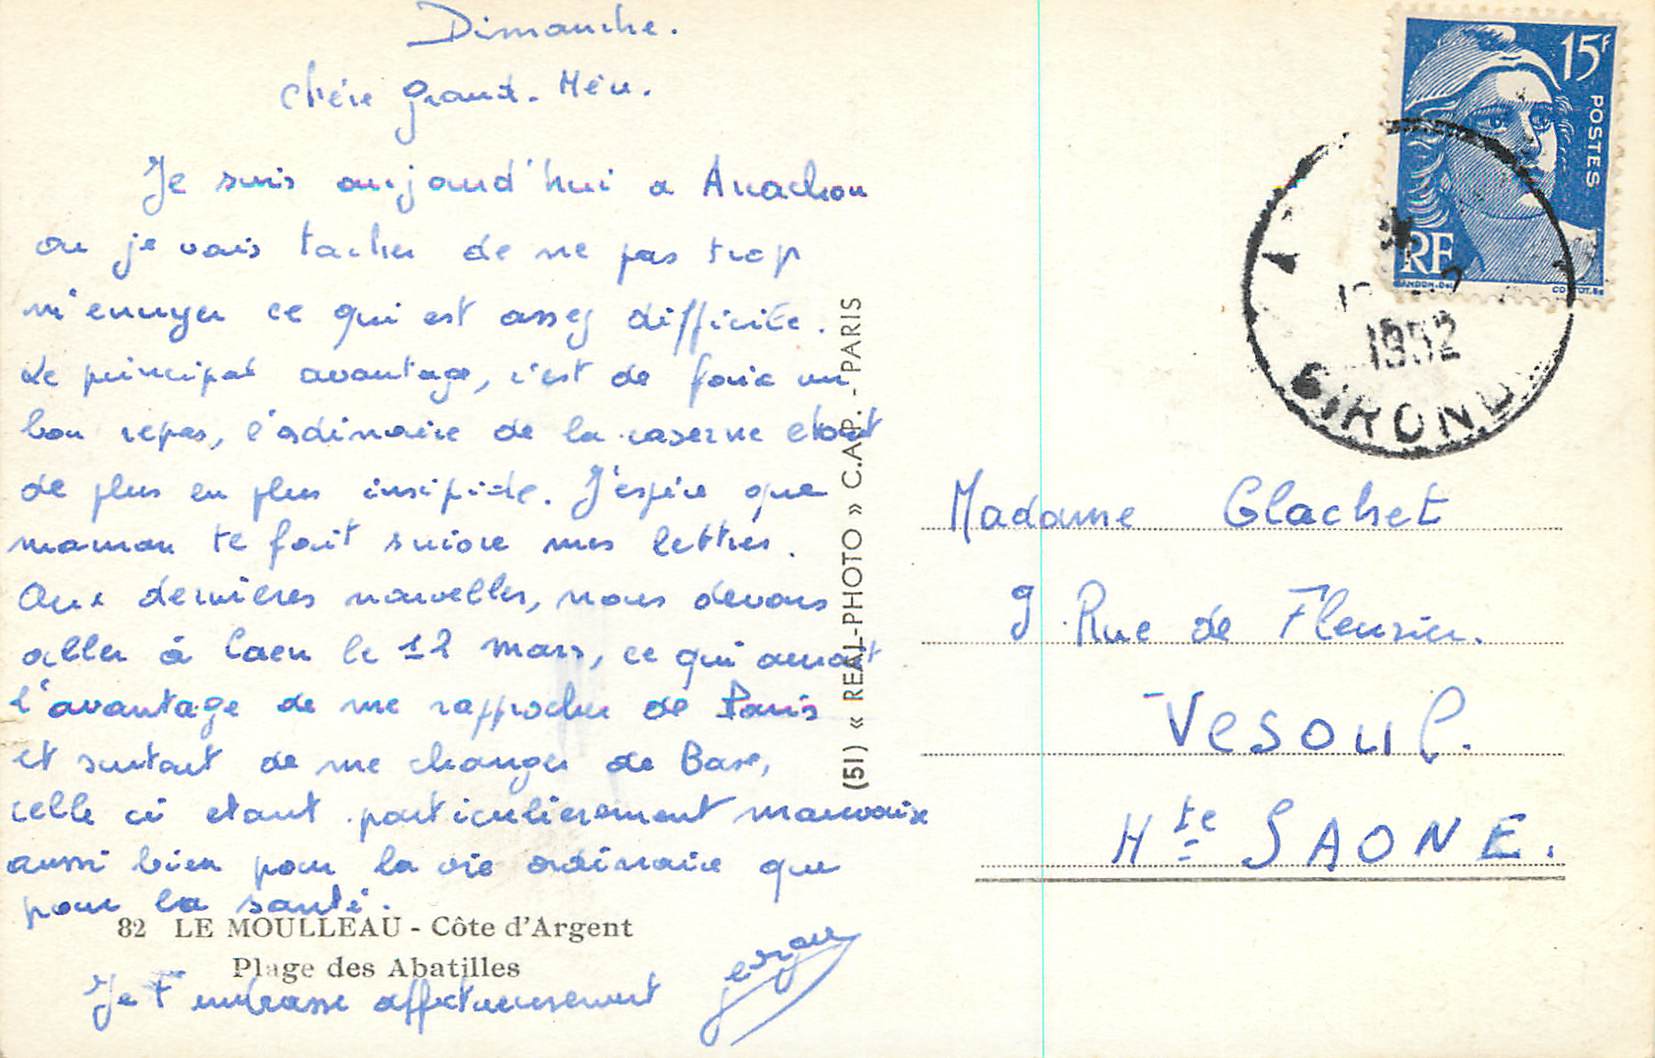 Dimanche.
Chère Grand-Mère.
Je suis aujourd'hui a Arcachon
ou je vais tacher de ne pas trop
m'ennuyer ce qui est assez difficile.
Le principal avantage, c'est de faire un
bon repas, l'ordinaire de la caserne etant
de plus en plus insipide. J'espère que
maman te fait suivre mes lettres.
Aux dernières nouvelles, nous devons
aller à Caen le 12 mars, ce qui aurait
l'avantage de me rapprocher de Paris
et surtout de me changer de Base,
celle ci etant particulierement mauvaise
aussi bien pour la vie ordinaire que
pour la santé.
82 LE MOULLEAU - Côte d'Argent
Plage des Abatilles
Je t'embrasse affectueusement
(51) « REAL-PHOTO » C.A.P. - PARIS
15F
POSTES
RF
1952
GIROND
Madame Clachet
9 Rue de Fleurier.
VESOUL.
Hte SAONE.